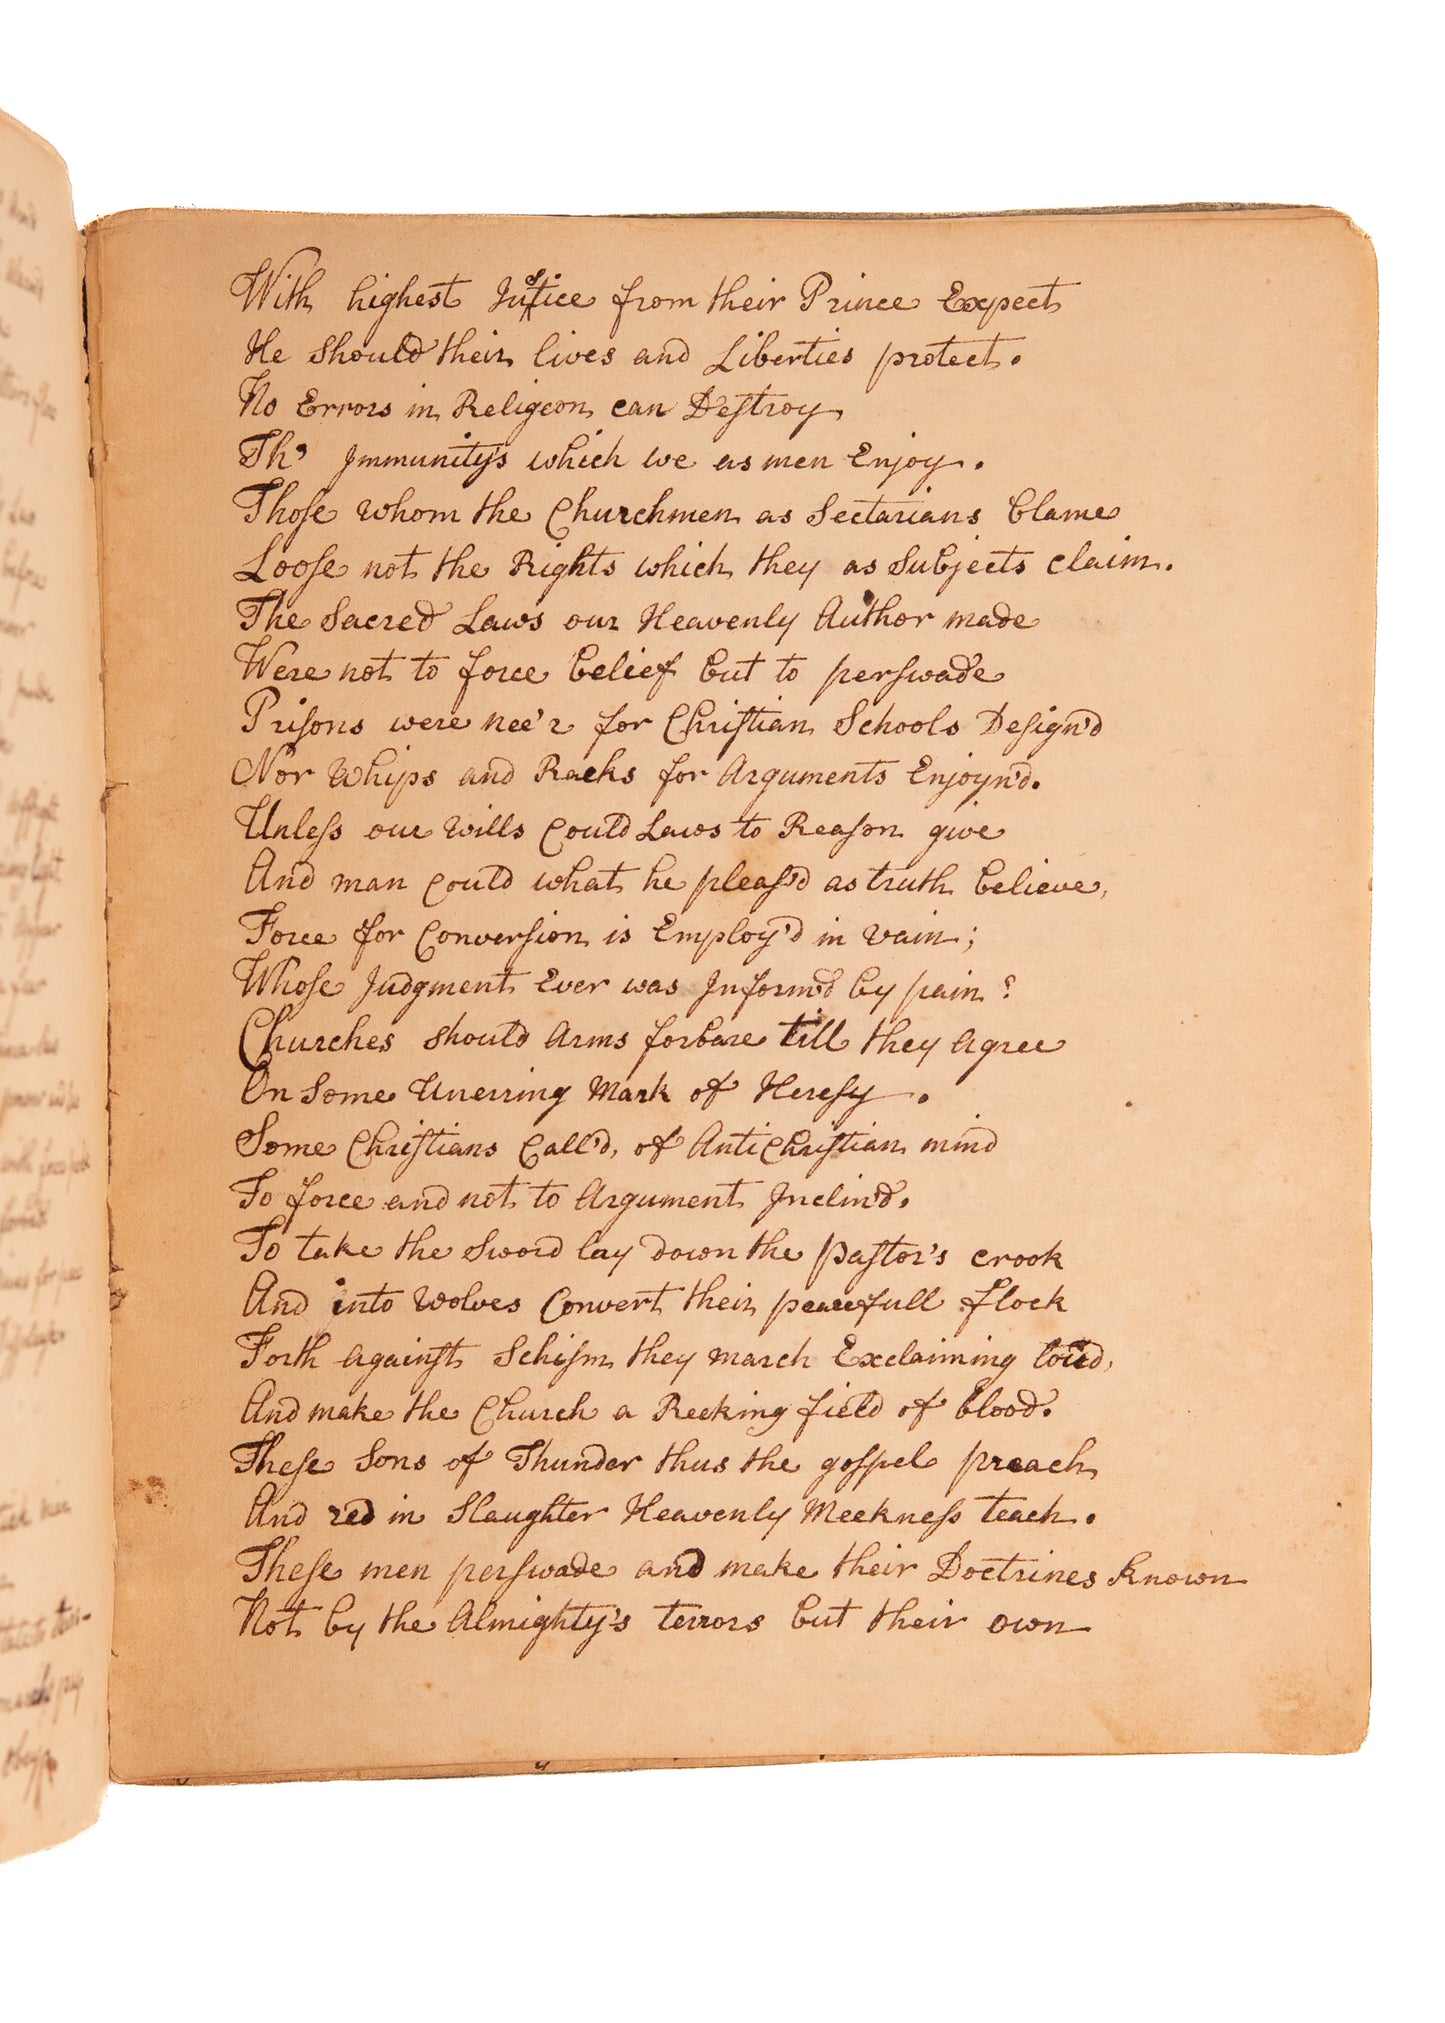 With highest Justice from their Prince Expect
He should their lives and Liberties protect.
No Errors in Religeon can Destroy
Th' Immunity's which we as men Enjoy.
Those whom the Churchmen as Sectarians blame
Loose not the Rights which they as Subjects claim.
The Sacred Laws our Heavenly Author made
Were not to force belief but to perswade
Prisons were nee'r for Christian Schools Design'd
Nor Whips and Racks for Arguments Enjoyn'd.
Unless our Wills Could Laws to Reason give
And man Could what he pleas'd as truth believe,
Force for Conversion is Employ'd in vain;
Whose Judgment Ever was Inform'd by pain?
Churches should Arms forbare till they Agree
On Some Unerring Mark of Heresy.
Some Christians Call'd, of AntiChristian mind
To force and not to Argument Inclin'd.
To take the Sword lay down the pastor's crook
And into Wolves Convert their peacefull flock
Forth Against Schism they march Exclaiming loud,
And make the Church a Reeking field of blood.
These Sons of Thunder thus the gospel preach
And red in Slaughter Heavenly Meekness teach.
These men perswade and make their Doctrines Known
Not by the Almighty's terrors but their own